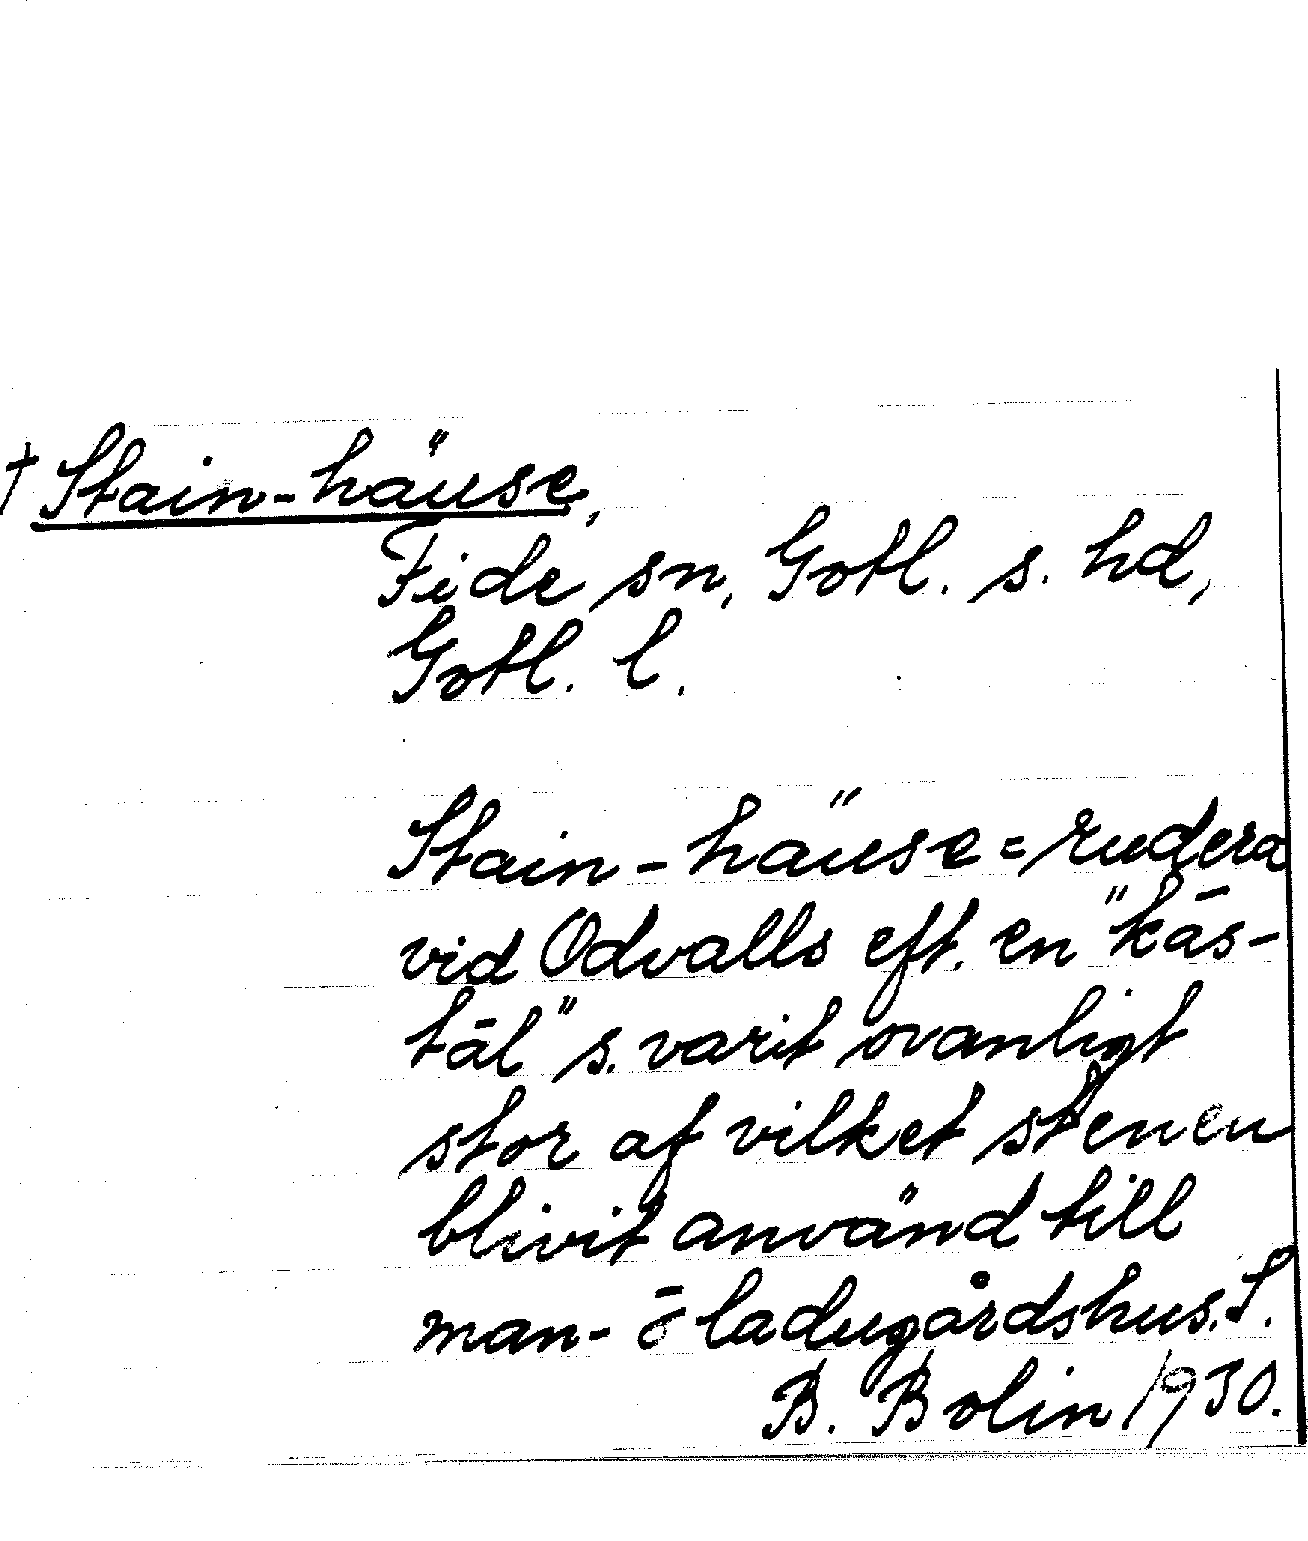 † Stain-häuse,
Fide sn, Gotl. s. hd,
Gotl. l.
Stain-häuse = rudera
vid Odvalls eft. en "kās-
tāl" s. varit ovanligt
stor af vilket stenen
blivit använd till
man- ō ladugårdshus. S.
B. Bolin 1930.